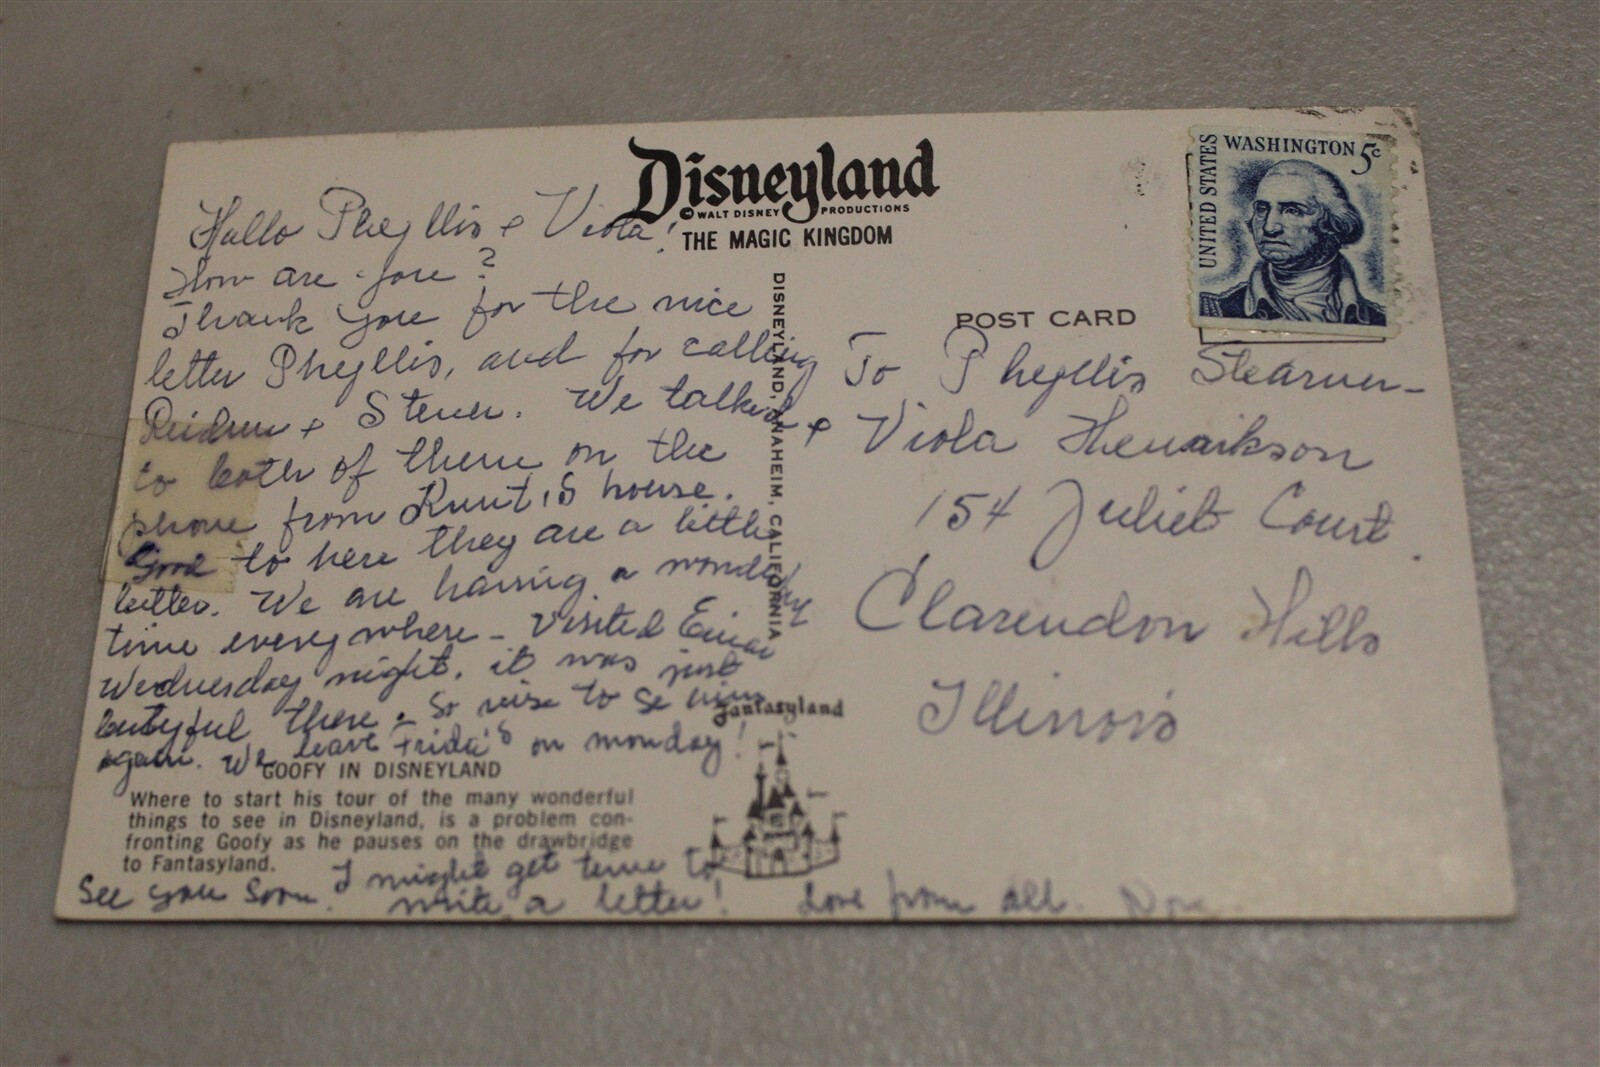 Disneyland
© WALT DISNEY PRODUCTIONS
THE MAGIC KINGDOM
Hallo Phyllis + Viola!
How are you?
Thank you for the nice
letter Phyllis, and for calling
+ Stener. We talked
to both of them on the
phone from Knut,s house.
Good to here they are a little
better. We are having a wonderful
time everywhere - Visited Einar
Wednesday night. it was just
there. So nise to se him
again. We leave Frida's on monday!
GOOFY IN DISNEYLAND
Where to start his tour of the many wonderful
things to see in Disneyland, is a problem con-
fronting Goofy as he pauses on the drawbridge
to Fantasyland.
See you soon. I might get time to
write a letter! Love from all.
DISNEYLAND, ANAHEIM, CALIFORNIA
Fantasyland
UNITED STATES
WASHINGTON 5c
POST CARD
To Phyllis Stearner
+ Viola Henrikson
154 Juliet Court
Clarendon Hills
Illinois